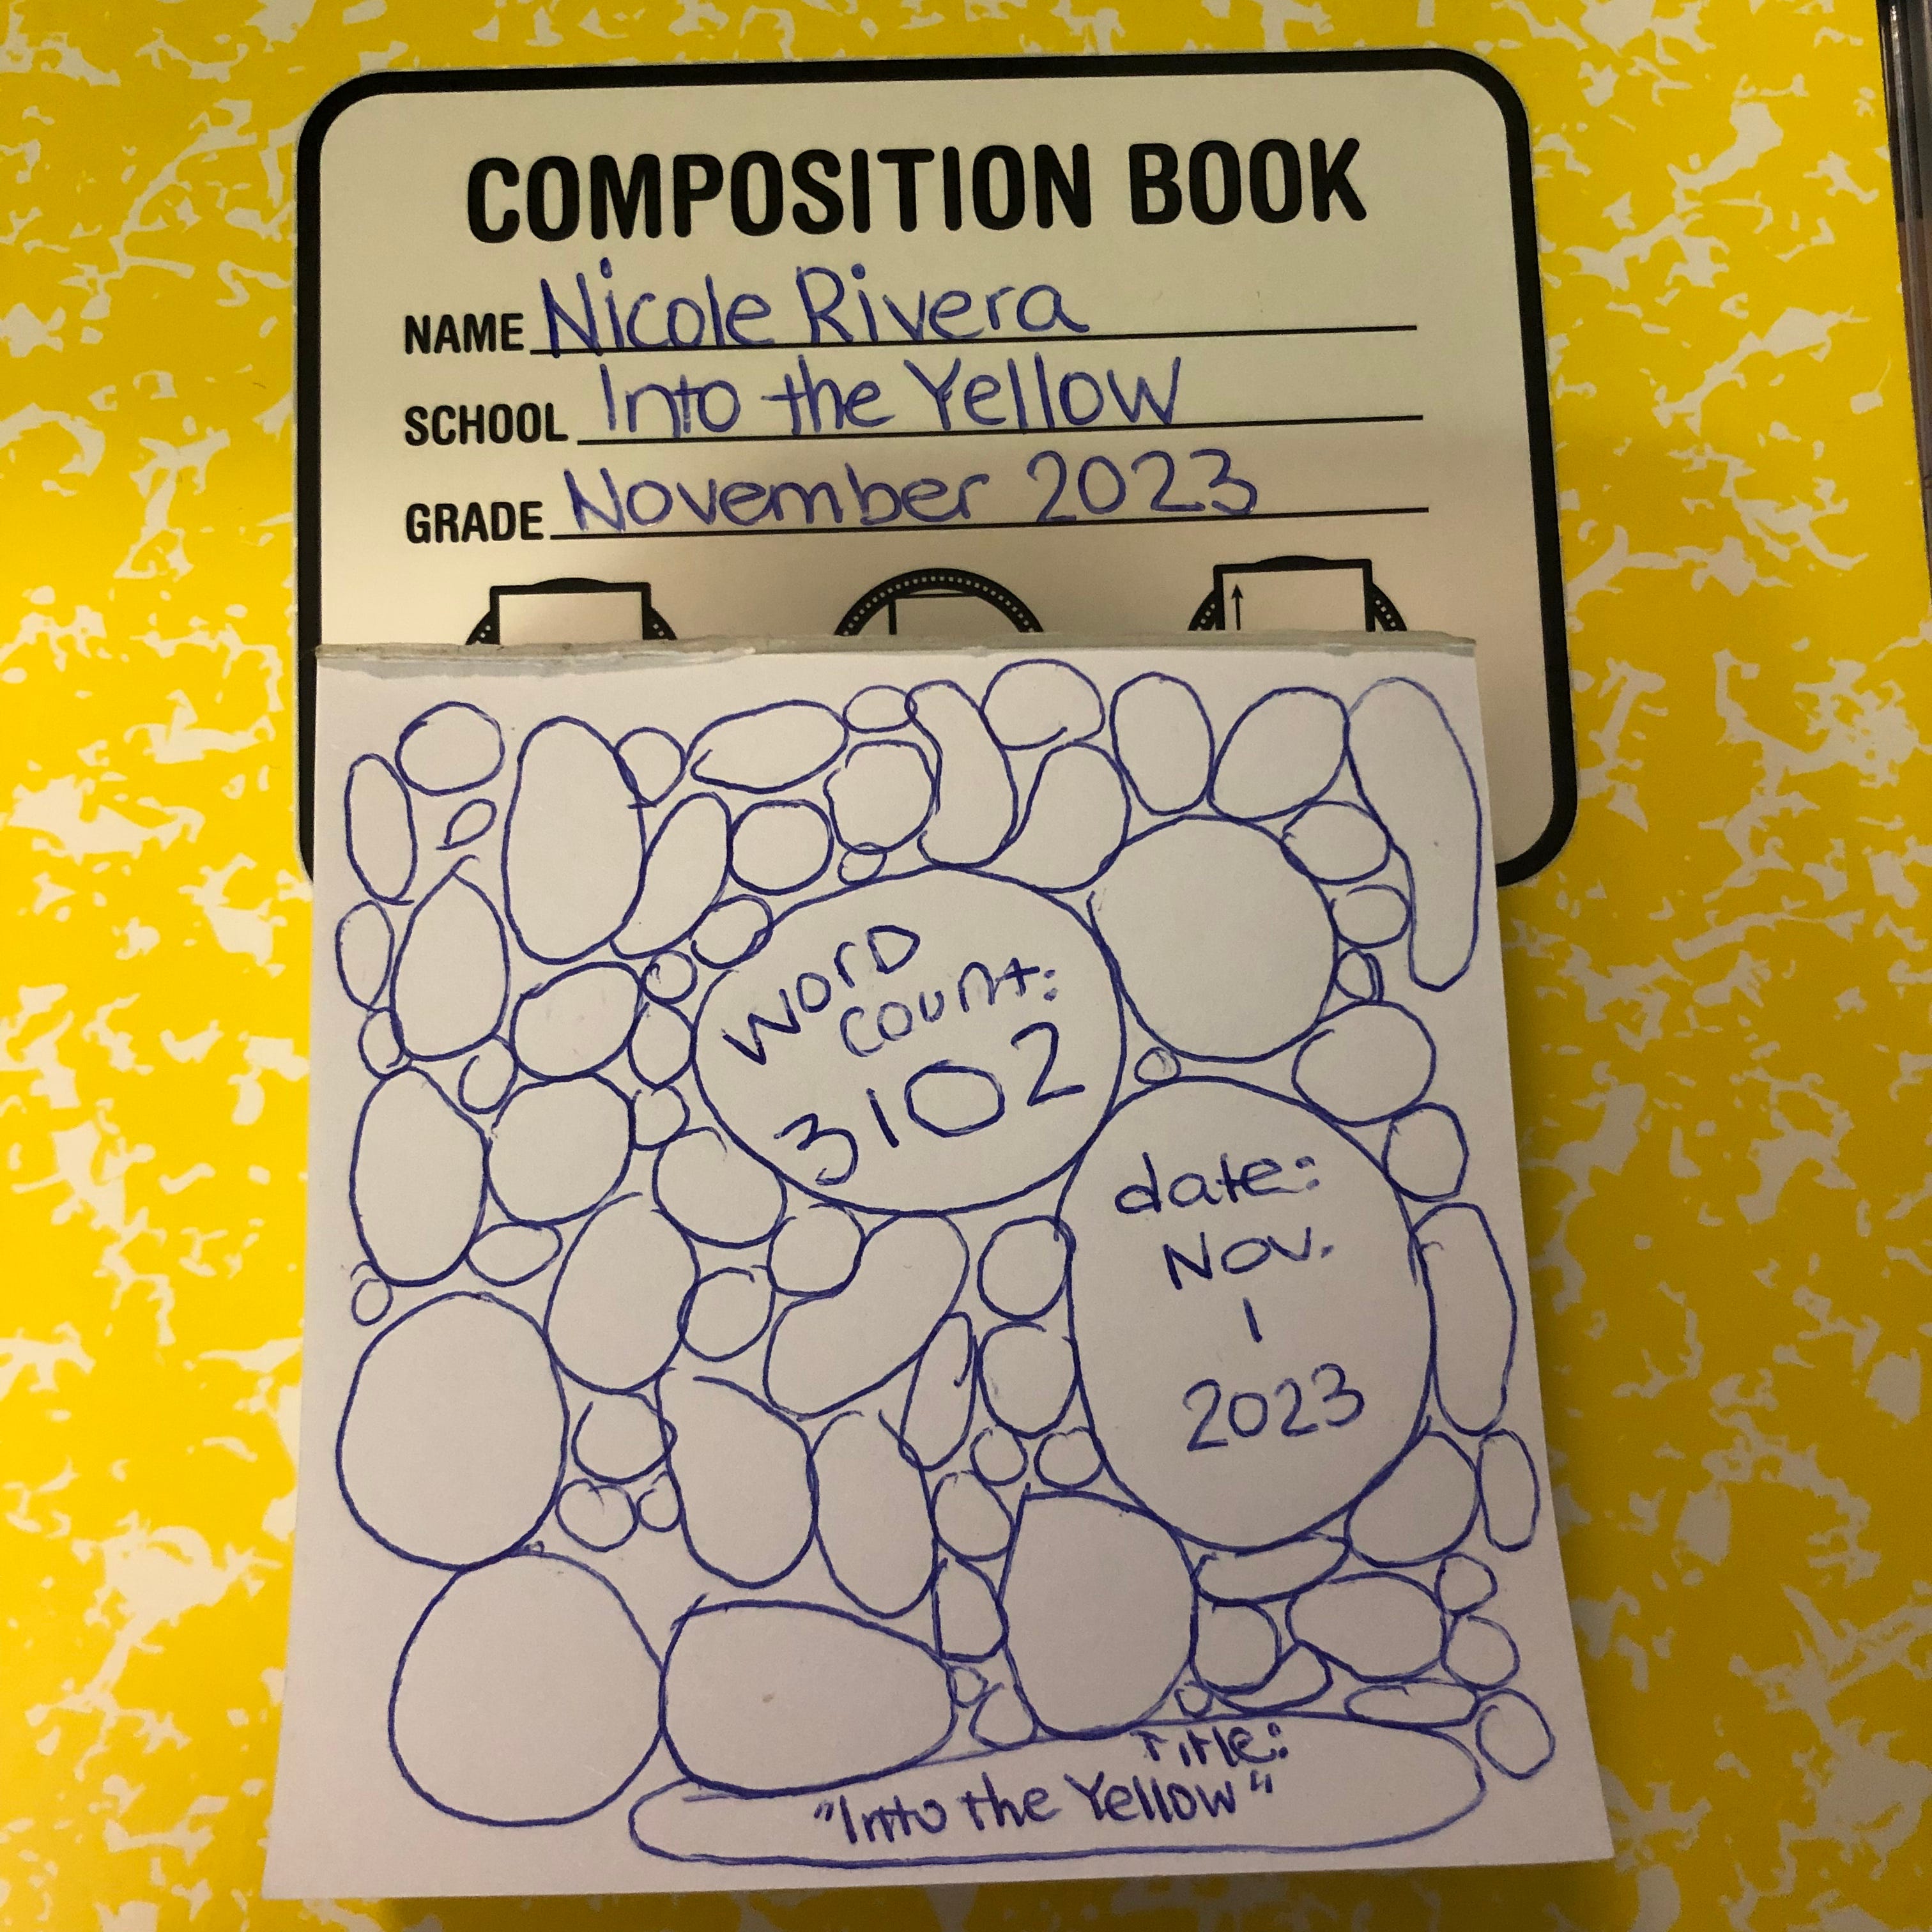 COMPOSITION BOOK
NAME Nicole Rivera
SCHOOL Into the Yellow
GRADE November 2023
Word
Count:
3102
date:
Nov.
1
2023
Title:
"Into the Yellow"